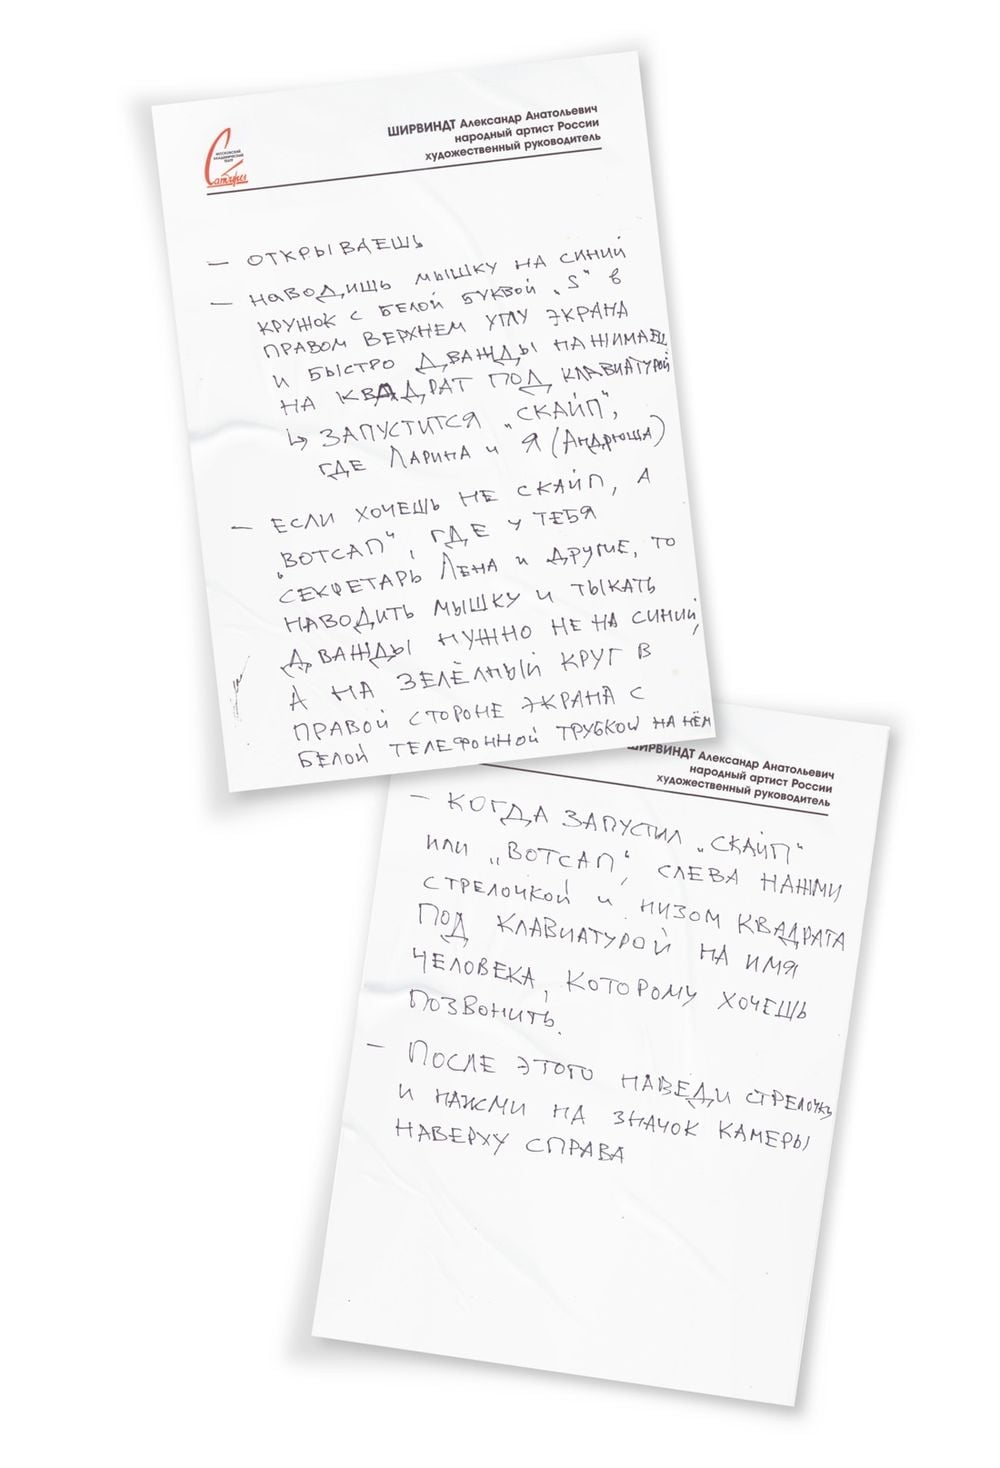 ШИРВИНДТ Александр Анатольевич
народный артист России
художественный руководитель
МОСКОВСКИЙ
АКАДЕМИЧЕСКИЙ
ТЕАТР
Сатиры
— ОТКРЫВАЕШЬ
— НАВОДИШЬ МЫШКУ НА СИНИЙ
КРУЖОК С БЕЛОЙ БУКВОЙ „S“ В
ПРАВОМ ВЕРХНЕМ УГЛУ ЭКРАНА
И БЫСТРО ДВАЖДЫ НАЖИМАЕШЬ
НА КВАДРАТ ПОД КЛАВИАТУРОЙ
↳ ЗАПУСТИТСЯ „СКАЙП“,
ГДЕ ЛАРИНА И Я (АНДРЮША)
— ЕСЛИ ХОЧЕШЬ НЕ СКАЙП, А
„ВОТСАП“, ГДЕ У ТЕБЯ
СЕКРЕТАРЬ ЛЕНА И ДРУГИЕ, ТО
НАВОДИТЬ МЫШКУ И ТЫКАТЬ
ДВАЖДЫ НУЖНО НЕ НА СИНИЙ,
А НА ЗЕЛЁНЫЙ КРУГ В
ПРАВОЙ СТОРОНЕ ЭКРАНА С
БЕЛОЙ ТЕЛЕФОННОЙ ТРУБКОЙ НА НЁМ
ШИРВИНДТ Александр Анатольевич
народный артист России
художественный руководитель
— КОГДА ЗАПУСТИЛ „СКАЙП“
ИЛИ „ВОТСАП“, СЛЕВА НАЖМИ
СТРЕЛОЧКОЙ И НИЗОМ КВАДРАТА
ПОД КЛАВИАТУРОЙ НА ИМЯ
ЧЕЛОВЕКА, КОТОРОМУ ХОЧЕШЬ
ПОЗВОНИТЬ.
— ПОСЛЕ ЭТОГО НАВЕДИ СТРЕЛОЧКУ
И НАЖМИ НА ЗНАЧОК КАМЕРЫ
НАВЕРХУ СПРАВА